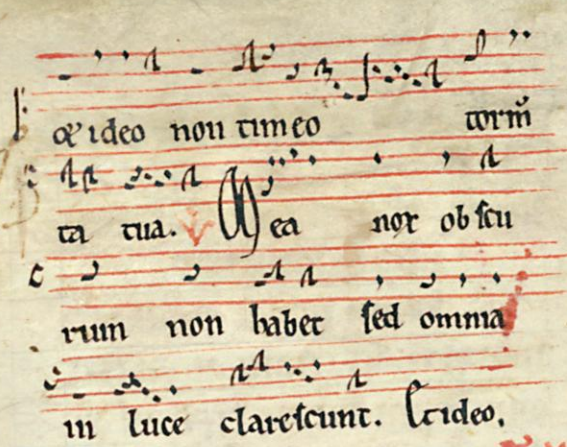 & ideo non timeo torm̅
ta tua. ℣ Mea nox obscu
rum non habet sed omnia
in luce clarescunt. Et ideo.